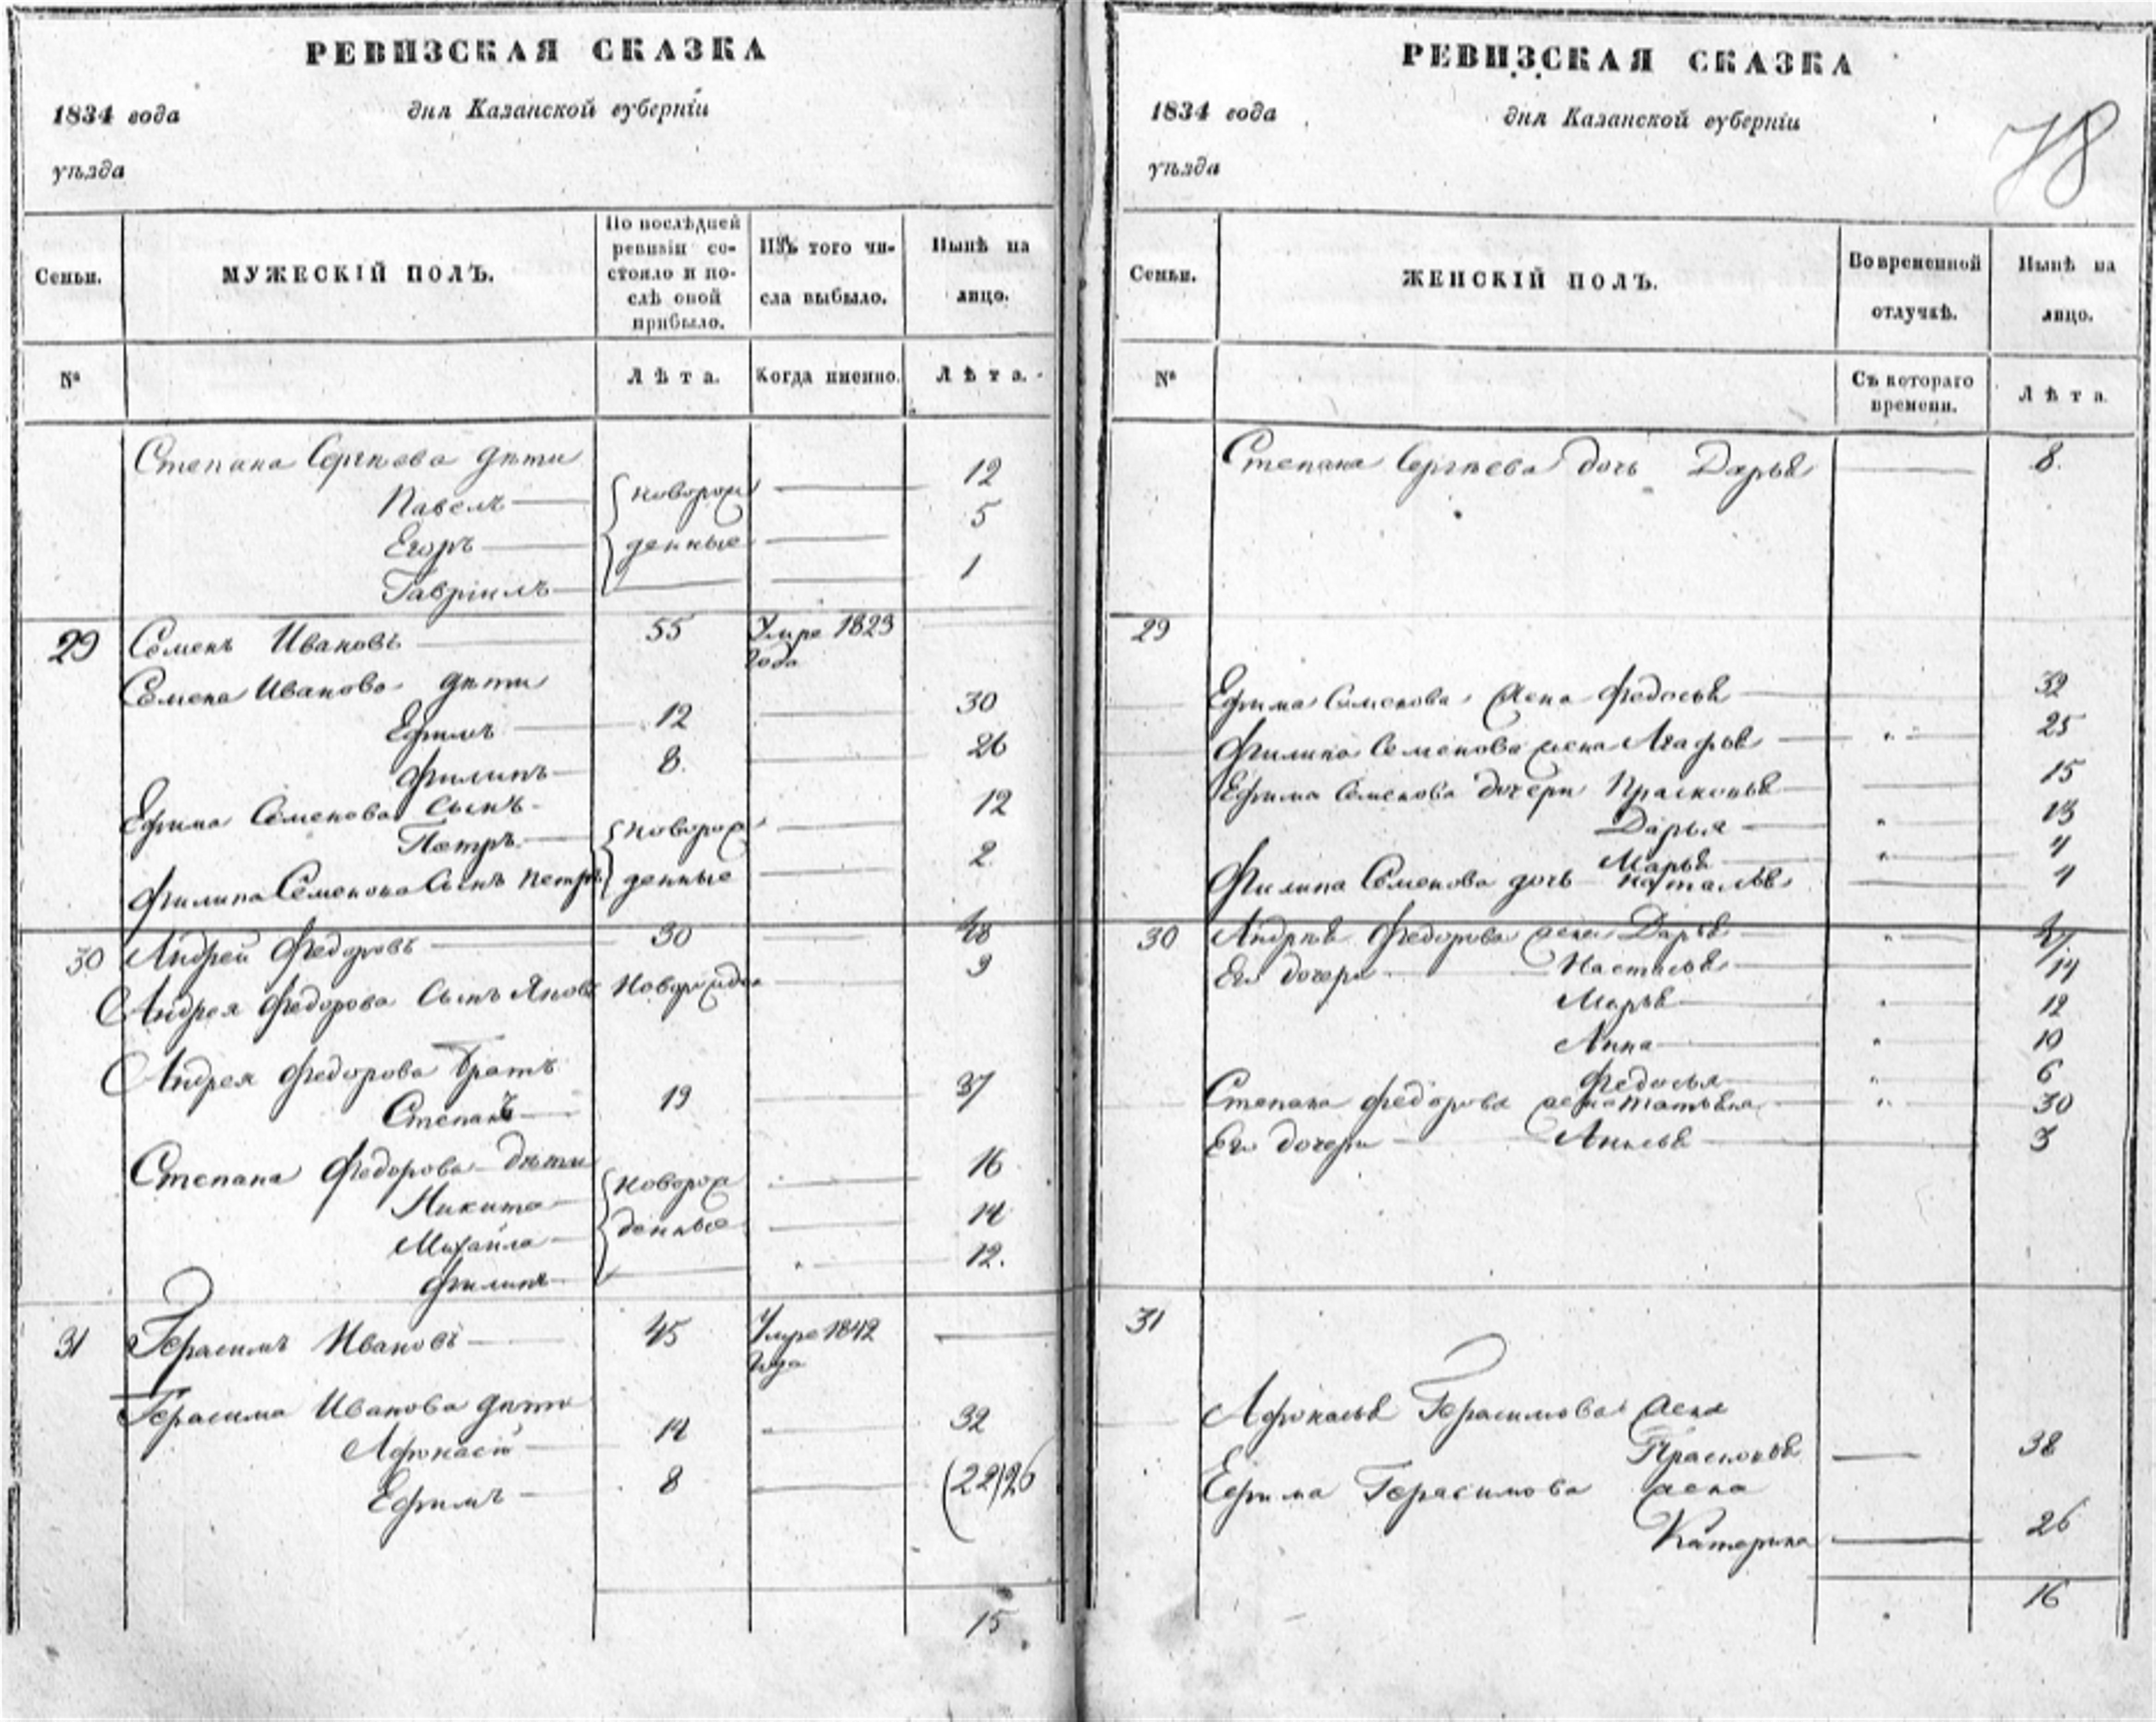 РЕВИЗСКАЯ СКАЗКА
1834 года дня Казанской губерніи
уѣзда
Семьи. МУЖЕСКІЙ ПОЛЪ. По послѣдней ревизіи состояло и послѣ оной прибыло. Изъ того числа выбыло. Нынѣ на лицо.
№ Лѣта. Когда именно. Лѣта.
Степана Сергѣева дѣти
Павелъ новорож 12
Егоръ денные 5
Гавріилъ 1
29 Семенъ Ивановъ 55 Умре 1823
года
Семена Иванова дѣти
Ефимъ 12 30
Филипъ 8. 26
Ефима Семенова сынъ
Петръ новорож 12
Филипа Семенова сынъ Петръ денные 2
30 Андрей Федоровъ 30 48
Андрея Федорова сынъ Яковъ новорожден 9
Андрея Федорова братъ
Степанъ 19 37
Степана Федорова дѣти
Никита новорож 16
Михайла денные 14
Филипъ 12.
31 Герасимъ Ивановъ 45 Умре 1842
года
Герасима Иванова дѣти
Афонасій 14 32
Ефимъ 8 (22)26
15
РЕВИЗСКАЯ СКАЗКА
78
1834 года дня Казанской губерніи
уѣзда
Семьи. ЖЕНСКІЙ ПОЛЪ. Во временной отлучкѣ. Нынѣ на лицо.
№ Съ котораго времени. Лѣта.
Степана Сергѣева дочь Дарья 8.
29
Ефима Семенова жена Федосья 32
Филипа Семенова жена Агафья 25
Ефима Семенова дочери Прасковья 15
Дарья 13
Марья 4
Филипа Семенова дочь Наталья 4
30 Андрѣя Федорова жена Дарья
Его дочери Настасья 14
Марья 12
Анна 10
Федосья 6
Степана Федорова жена Татьяна 30
Его дочери Анисья 3
31
Афонасья Герасимова жена
Прасковья 38
Ефима Герасимова жена
Катерина 26
16